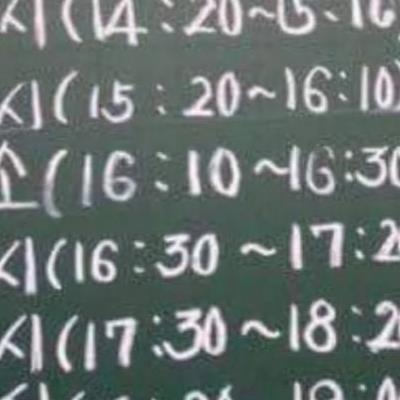 시(14:20~15:1
시(15:20~16:10)
소(16:10~16:30
시(16:30~17:2
시(17:30~18:2